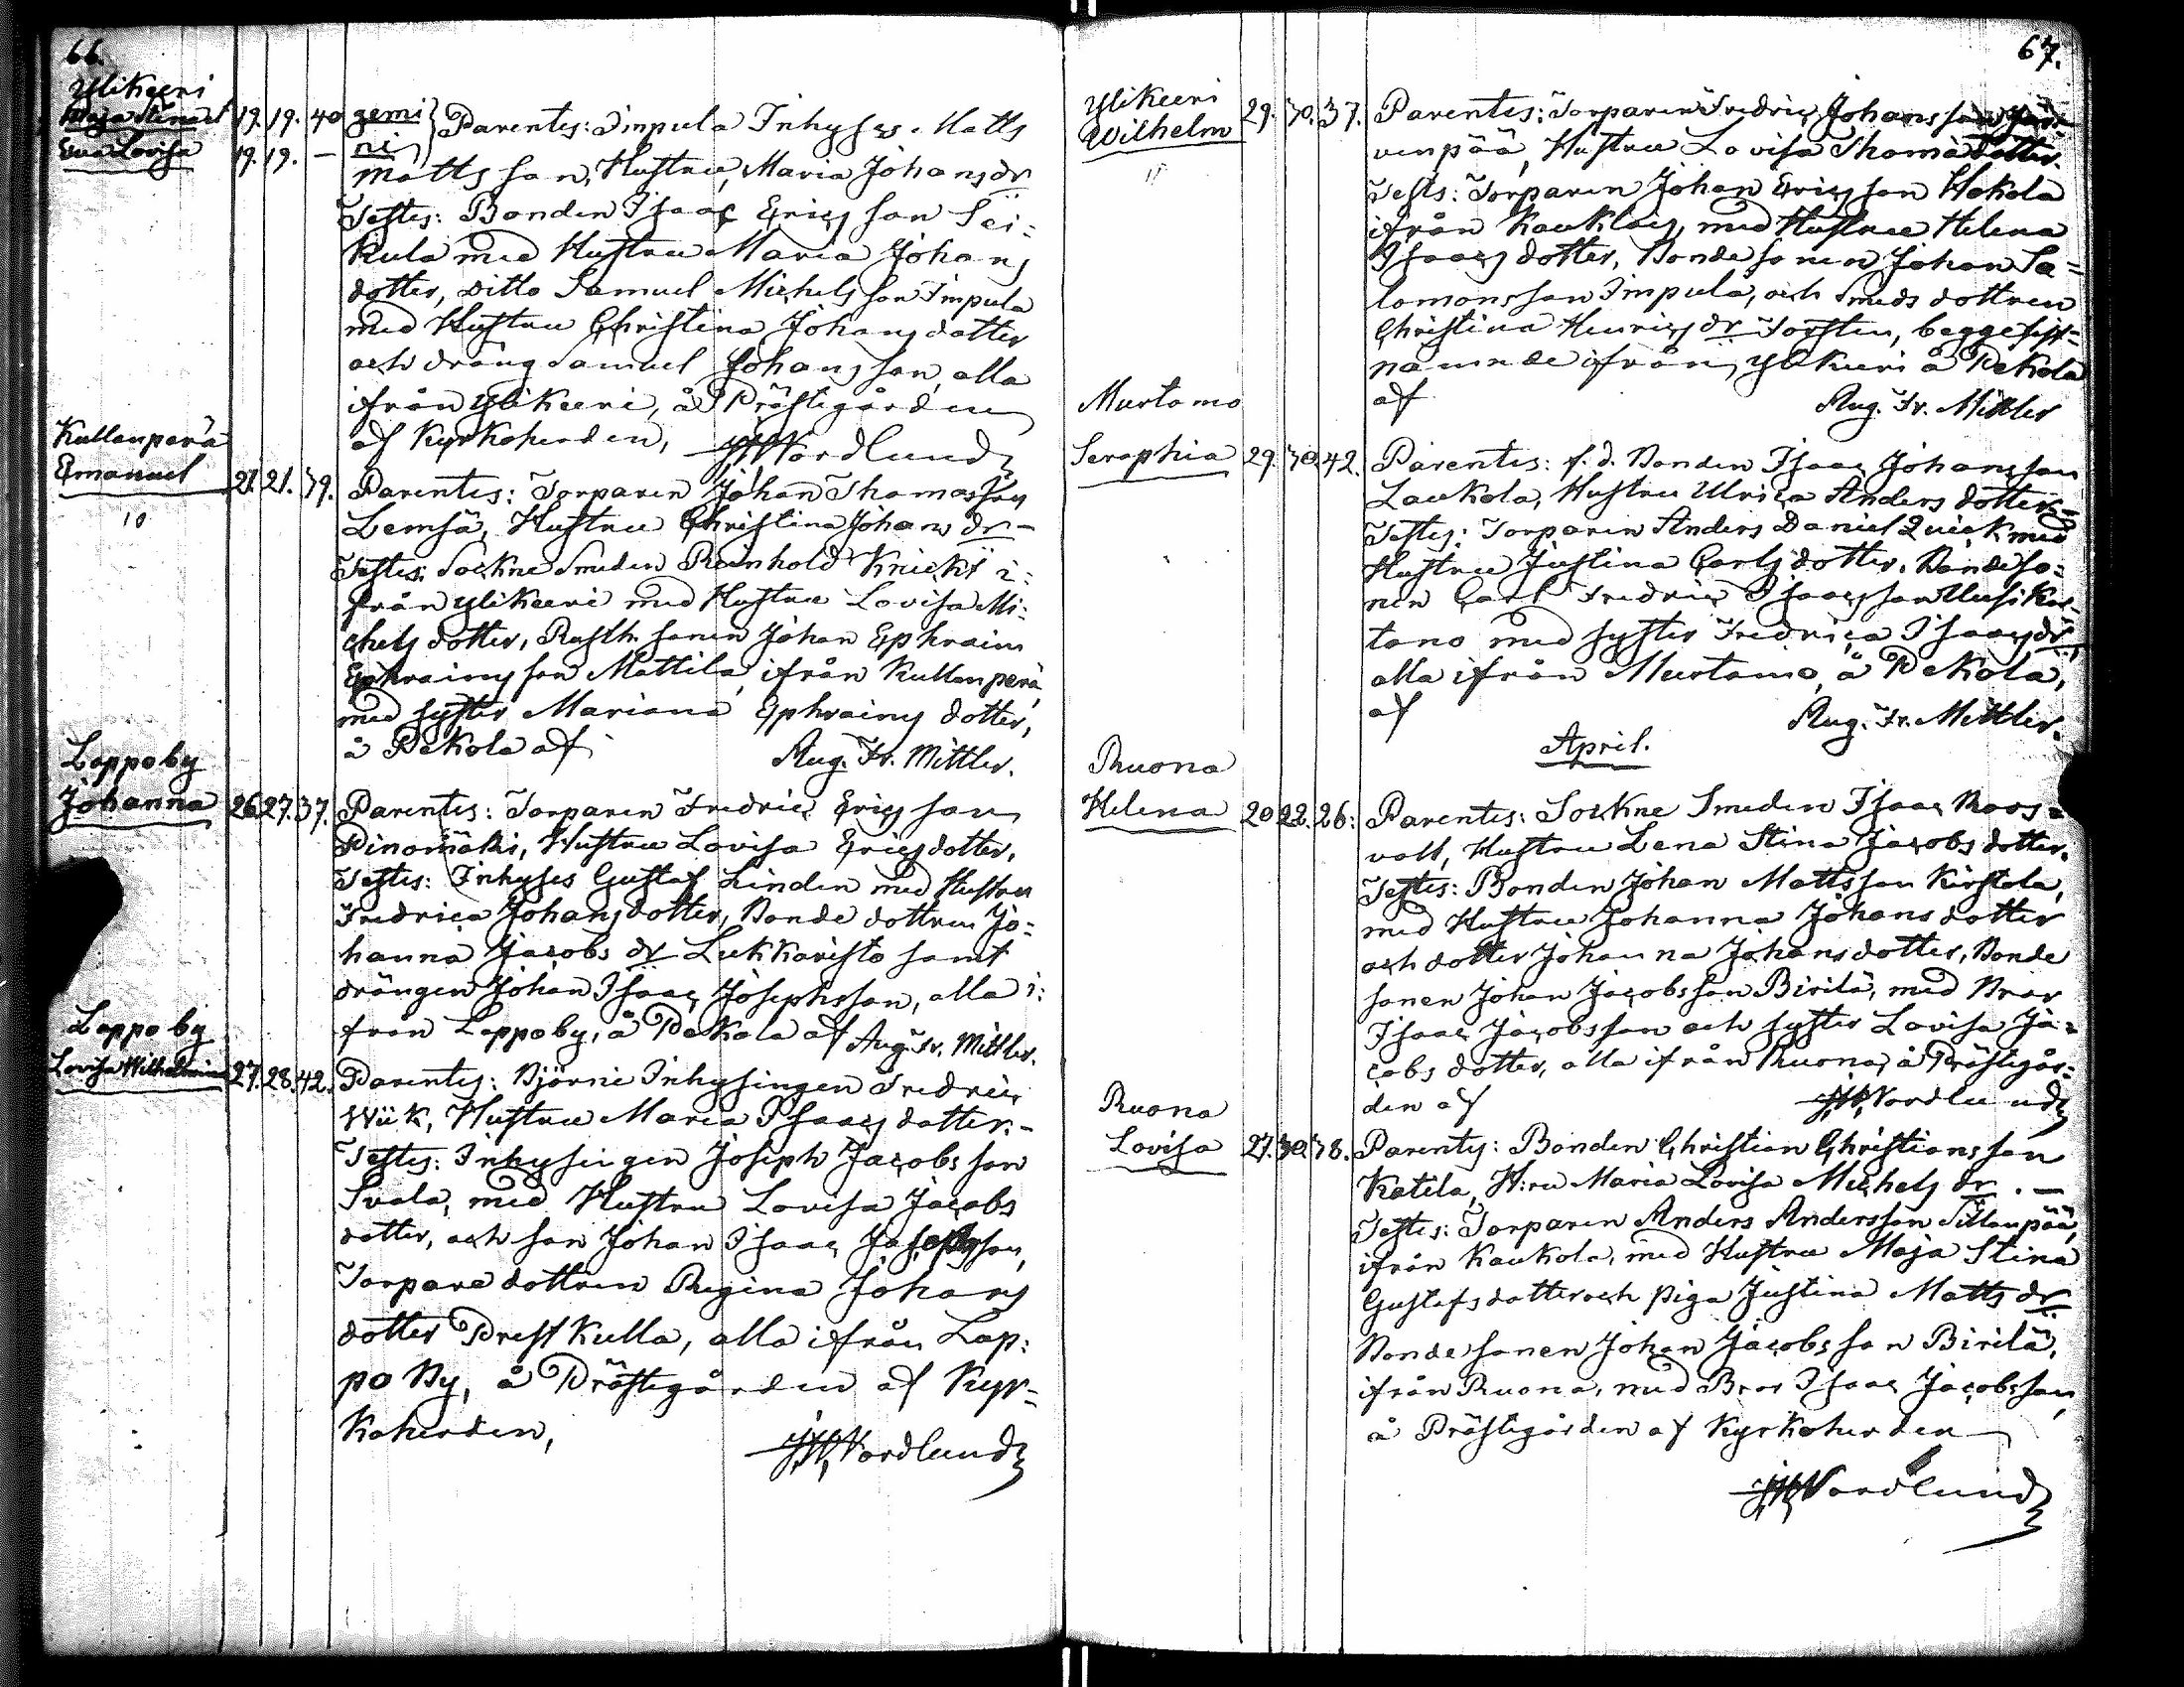 66.
Ylikeeri
Maja Stina et 19. 19. 40 gemi Parentes: Impula Inhyses. Matts
Eva Lovisa 19. 19. — ni
Mattsson, Hustru Maria Johansdr
Testes: Bonden Isaac Ericsson Sei-
kula med Hustru Maria Johans
dotter, ditto Samuel Michelsson Impula
med Hustru Christina Johansdotter
och dräng Samuel Johansson, alla
ifrån Ylikeeri, å Prästegården
af Kyrkoherden, Nordlund
Kullanperä
Emanuel 21. 21. 39. Parentes: Torparen Johan Thomasson
10
Lemsä, Hustru Christina Johansdr –
Testes: Sockne Smeden Reinhold Knickt i:
från Ylikeeri med Hustru Lovisa Mi:
chelsdotter, Rusth. sonen Johan Ephraim
Ephraimsson Mattila, ifrån Kullanperä,
med syster Mariana Ephraims dotter,
å Pekola af Aug. Fr. Mittler.
Lappoby
Johanna 26. 27. 37. Parentes: Torparen Fredric Ericsson
Pinomäki, Hustru Lovisa Ericsdotter.
Testes: Inhyses Gustaf Linden med Hustru
Fredrica Johansdotter, Bonde dottren Jo-
hanna Jacobs dr Lukkaristo samt
drängen Johan Isaac Josephsson, alla i:
från Lappoby, å Pekola af Aug. Fr. Mittler.
Lappo by
Lovisa Wilhelmina 27. 28. 42. Parentes: Björni Inhysingen Fredric
Wiik, Hustru Maria Isaacsdotter. –
Testes: Inhysingen Joseph Jacobsson
Svala, med Hustru Lovisa Jacobs
dotter, och son Johan Isaac Josephsson,
Torpare dottren Regina Johans
dotter Prestkulla, alla ifrån Lap:
po By, å Prästegården af Kyr-
koherden, Nordlund
67.
Ylikeeri
Wilhelm 29. 30. 37. Parentes: Torparen Fredric Johansson Jär-
11
venpää, Hustru Lovisa Thomædotter.
Tests: Torparen Johan Ericsson Hokola
ifrån Kauklais, med Hustru Helena
Isaacsdotter, Bondesonen Johan Sa-
lomonsson Impula, och Smeds dottren
Christina Henricsdr Torsten, begge sist-
nämnde ifrån Ylikeeri å Pekola
af Aug. Fr. Mittler
Murtamo
Seraphia 29. 30. 42. Parentes: f. d. Bonden Isaac Johansson
Laukola, Hustru Ulrica Anders dotter –
Testes: Torparen Anders Daniel Quick med
Hustru Justina Carlsdotter. Bondeso-
nen Carl Fredric Isaacsson Uusikar-
tano med syster Fredrica Isaacsdr,
alla ifrån Murtamo, å Pekola,
af Aug. Fr. Mittler.
April.
Ruona
Helena 20 22. 26: Parentes: Sockne Smeden Isaac Roos-
vall, Hustru Lena Stina Jacobs dotter.
Testes: Bonden Johan Mattsson Kirstola,
med Hustru Johanna Johansdotter
och dotter Johanna Johansdotter, Bonde
sonen Johan Jacobsson Birilä, med Bror
Isaac Jacobsson och syster Lovisa Ja-
cobs dotter, alla ifrån Ruona, å Prästegår-
den af Nordlund
Ruona
Lovisa 27. 30. 38. Parentes: Bonden Christian Christiansson
Katila, H:ru Maria Lovisa Michels dr. –
Testes: Torparen Anders Andersson Sillanpää,
ifrån Kaukola, med Hustru Maja Stina
Gustafsdotter och piga Justina Matts dr.
Bonde sonen Johan Jacobsson Birilä,
ifrån Ruona, med Bror Isaac Jacobsson,
å Prästegården af Kyrkoherden
Nordlund